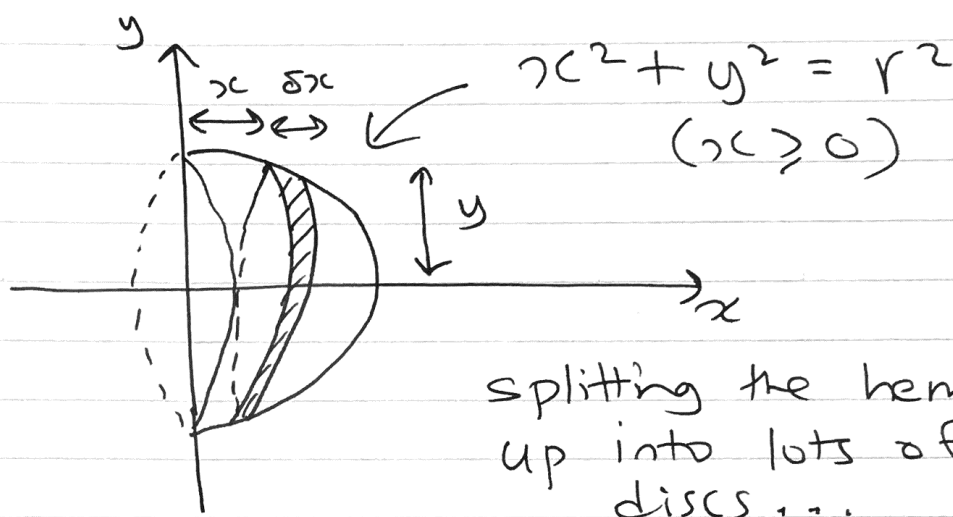 y
x δx
x² + y² = r²
(x ⩾ 0)
y
x
splitting the hem
up into lots of
discs...